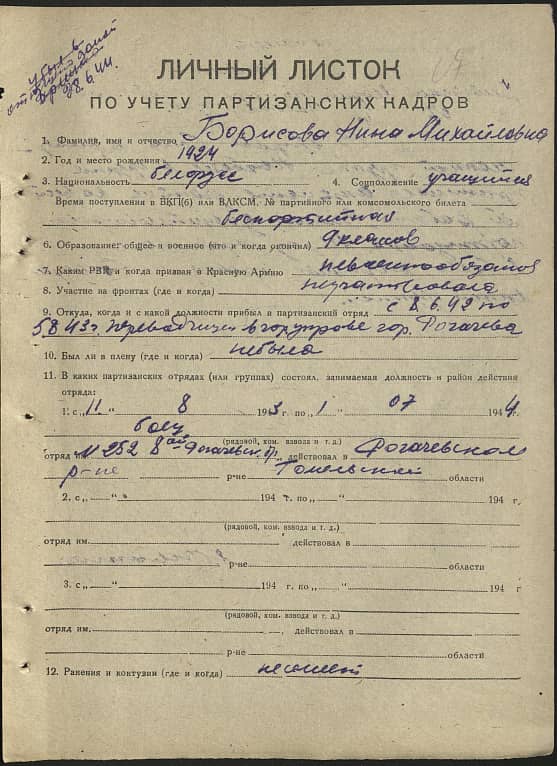 убыл в
28.6.44.
ЛИЧНЫЙ ЛИСТОК
ПО УЧЕТУ ПАРТИЗАНСКИХ КАДРОВ
1. Фамилия, имя и отчество Борисова Нина Михайловна
2. Год и место рождения 1924
3. Национальность белорус 4. Соцположение учащийся
Время поступления в ВКП(б) или ВЛКСМ, № партийного или комсомольского билета
беспартийная
6. Образование: общее и военное (что и когда окончил) 9 классов
7. Каким РВК и когда призван в Красную Армию невоеннообязаная
8. Участие на фронтах (где и когда) неучаствовала
9. Откуда, когда и с какой должности прибыл в партизанский отряд с 8.6.42 по
5.8.43г. переводчица в горуправе гор. Рогачева
10. Был ли в плену (где и когда) небыла
11. В каких партизанских отрядах (или группах) состоял, занимаемая должность и район действия
отряда:
1. с „ 11 “ 8 1943 г. по „ 1 “ 07 1944 г.
боец
(рядовой, ком. взвода и т. д.)
отряд им. 252 8ой Рогачевск. бр., действовал в Рогачевском
р-не р-не Гомельской области
2. с „ “ 194 г. по „ “ 194 г.
(рядовой, ком. взвода и т. д.)
отряд им. действовал в
р-не области
3. с „ “ 194 г. по „ “ 194 г.
(рядовой, ком. взвода и т. д.)
отряд им. , действовал в
р-не области
12. Ранения и контузии (где и когда) неимеет